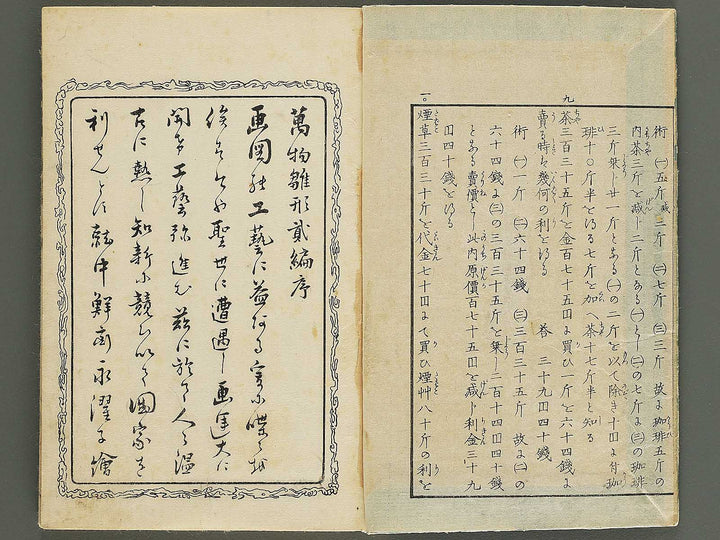 術 ㈠五斤減三斤 ㈡七斤 ㈢三斤 故ニ珈琲五斤の
内茶三斤を減し二斤とある㈠とし㈡の七斤に㈢の珈琲
三斤乗し廿一斤とある㈠の二斤を以て除き十口に付珈
琲十〇斤半を得る七斤を加へ茶十七斤半と知る
九
茶三百三十五斤を金百七十五円に買ひ一斤を六十四錢に
賣る時は幾何の利を得る 答 三十九円四十錢
術 ㈠一斤 ㈡六十四錢 ㈢三百三十五斤 故に㈡の
六十四錢に㈢の三百三十五斤を乗し二百十四円四十錢
とある賣價とし此内原價百七十五円を減し利金三十九
円四十錢を得る
一〇
煙草三百三十斤を代金七十円にて買ひ煙艸八十斤の利を
萬物雛形貳編序
画図の工藝に益ある
聖世に遭遇し画運大に
開け工藝弥進む茲に於て人々温
古に熱し知新に競ひ以て國家を
利せんとす就中鮮齋永濯子繪